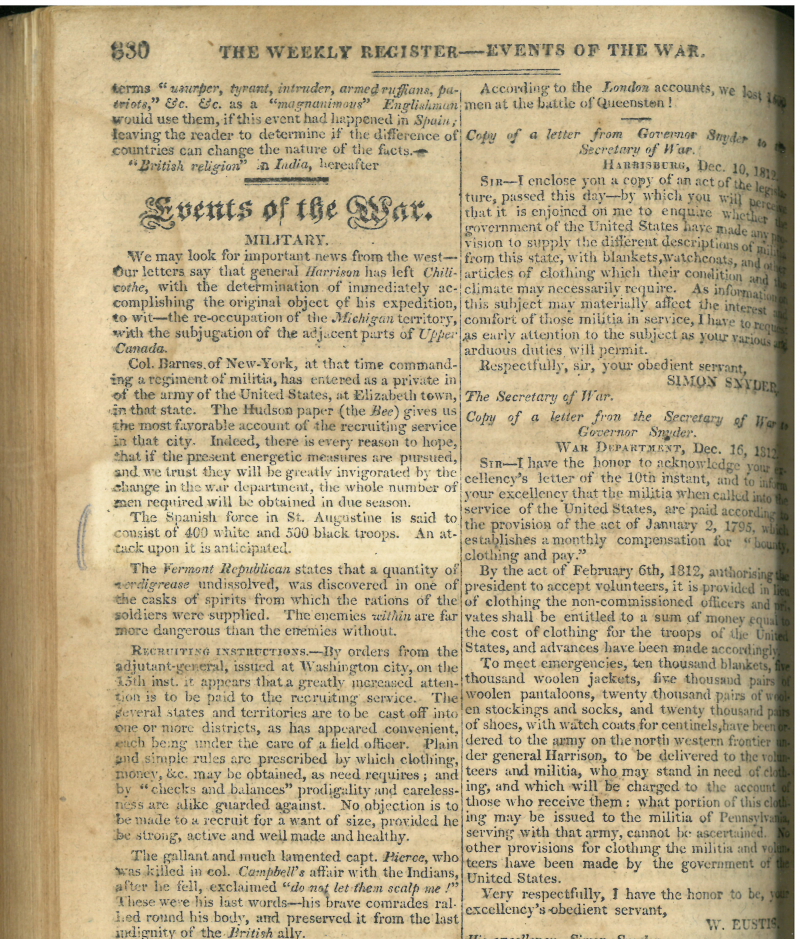 330 THE WEEKLY REGISTER—EVENTS OF THE WAR.
terms "usurper, tyrant, intruder, armed ruffians, pa-
triots," &c. &c. as a "magnanimous" Englishman
would use them, if this event had happened in Spain;
leaving the reader to determine if the difference of
countries can change the nature of the facts.—
"British religion" in India, hereafter
Events of the War.
MILITARY.
We may look for important news from the west—
Our letters say that general Harrison has left Chili-
cothe, with the determination of immediately ac-
complishing the original object of his expedition,
to wit—the re-occupation of the Michigan territory,
with the subjugation of the adjacent parts of Upper
Canada.
Col. Barnes, of New-York, at that time command-
ing a regiment of militia, has entered as a private in
of the army of the United States, at Elizabeth town,
in that state. The Hudson paper (the Bee) gives us
the most favorable account of the recruiting service
in that city. Indeed, there is every reason to hope,
that if the present energetic measures are pursued,
and we trust they will be greatly invigorated by the
change in the war department, the whole number of
men required will be obtained in due season.
The Spanish force in St. Augustine is said to
consist of 400 white and 500 black troops. An at-
tack upon it is anticipated.
The Vermont Republican states that a quantity of
verdigrease undissolved, was discovered in one of
the casks of spirits from which the rations of the
soldiers were supplied. The enemies within are far
more dangerous than the enemies without.
RECRUITING INSTRUCTIONS.—By orders from the
adjutant-general, issued at Washington city, on the
15th inst. it appears that a greatly increased atten-
tion is to be paid to the recruiting service. The
several states and territories are to be cast off into
one or more districts, as has appeared convenient,
each being under the care of a field officer. Plain
and simple rules are prescribed by which clothing,
money, &c. may be obtained, as need requires; and
by "checks and balances" prodigality and careless-
ness are alike guarded against. No objection is to
be made to a recruit for a want of size, provided he
be strong, active and well made and healthy.
The gallant and much lamented capt. Pierce, who
was killed in col. Campbell's affair with the Indians,
after he fell, exclaimed "do not let them scalp me!"
These were his last words—his brave comrades ral-
lied round his body, and preserved it from the last
indignity of the British ally.
According to the London accounts, we lost
men at the battle of Queenston!
Copy of a letter from Governor Snyder to
Secretary of War.
HARRISBURG, Dec. 10, 1812
SIR—I enclose you a copy of an act of the legis
ture, passed this day—by which you will perce
that it is enjoined on me to enquire whether
government of the United States have made any
vision to supply the different descriptions of mili
from this state, with blankets, watchcoats, and
articles of clothing which their condition and
climate may necessarily require. As information
this subject may materially affect the interest
comfort of those militia in service, I have to request
as early attention to the subject as your various
arduous duties will permit.
Respectfully, sir, your obedient servant,
SIMON SNYDER
The Secretary of War.
Copy of a letter fron the Secretary of War to
Governor Snyder.
WAR DEPARTMENT, Dec. 16, 1812
SIR—I have the honor to acknowledge your ex
cellency's letter of the 10th instant, and to inform
your excellency that the militia when called into the
service of the United States, are paid according to
the provision of the act of January 2, 1795, which
establishes a monthly compensation for "bounty,
clothing and pay."
By the act of February 6th, 1812, authorising the
president to accept volunteers, it is provided in lieu
of clothing the non-commissioned officers and pri
vates shall be entitled to a sum of money equal to
the cost of clothing for the troops of the United
States, and advances have been made accordingly.
To meet emergencies, ten thousand blankets, five
thousand woolen jackets, five thousand pairs of
woolen pantaloons, twenty thousand pairs of wool
en stockings and socks, and twenty thousand pairs
of shoes, with watch coats for centinels, have been or
dered to the army on the north western frontier un
der general Harrison, to be delivered to the volun
teers and militia, who may stand in need of cloth
ing, and which will be charged to the account of
those who receive them: what portion of this cloth
ing may be issued to the militia of Pennsylvania,
serving with that army, cannot be ascertained. No
other provisions for clothing the militia and volun
teers have been made by the government of the
United States.
Very respectfully, I have the honor to be, your
excellency's obedient servant,
W. EUSTIS.
His excellency Simon